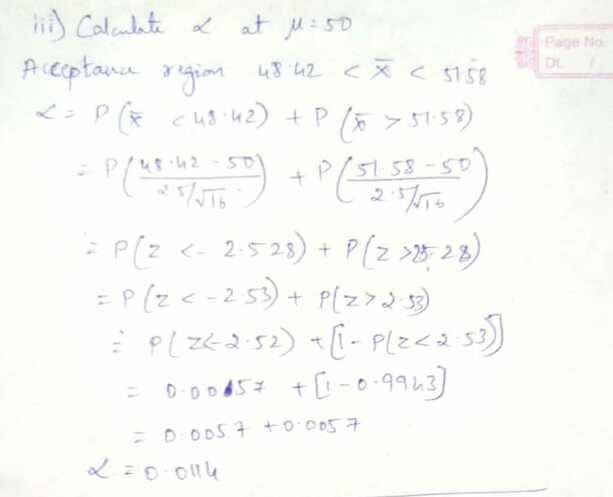 iii) Calculate α at μ = 50
Page No.
Dt. /
Acceptance region 48.42 < x̄ < 51.58
α = P(x̄ < 48.42) + P(x̄ > 51.58)
= P((48.42 - 50)/(2.5/√16)) + P((51.58 - 50)/(2.5/√16))
= P(Z < - 2.528) + P(Z > 25.28)
= P(Z < -2.53) + P(Z > 2.53)
= P(Z < -2.52) + [1 - P(Z < 2.53)]
= 0.0057 + [1 - 0.9943]
= 0.0057 + 0.0057
α = 0.0114